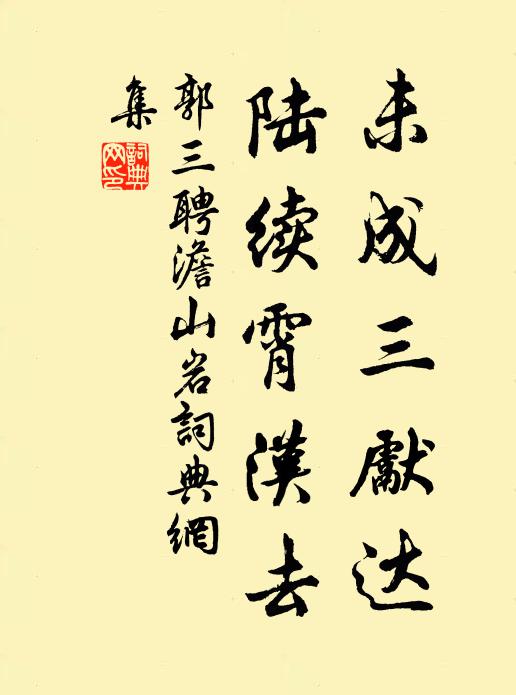 未成三獻达
陆续霄漢去
郭三聘澹山岩詞典網
集
詞典
网印